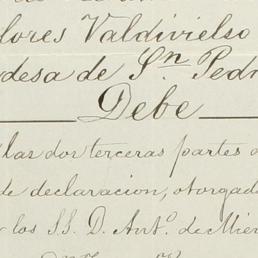 lores Valdivielso
desa de Sn. Pedr
Debe
las dos terceras partes
de declaracion, otorgad
los S.S. D. Anto. de Mier